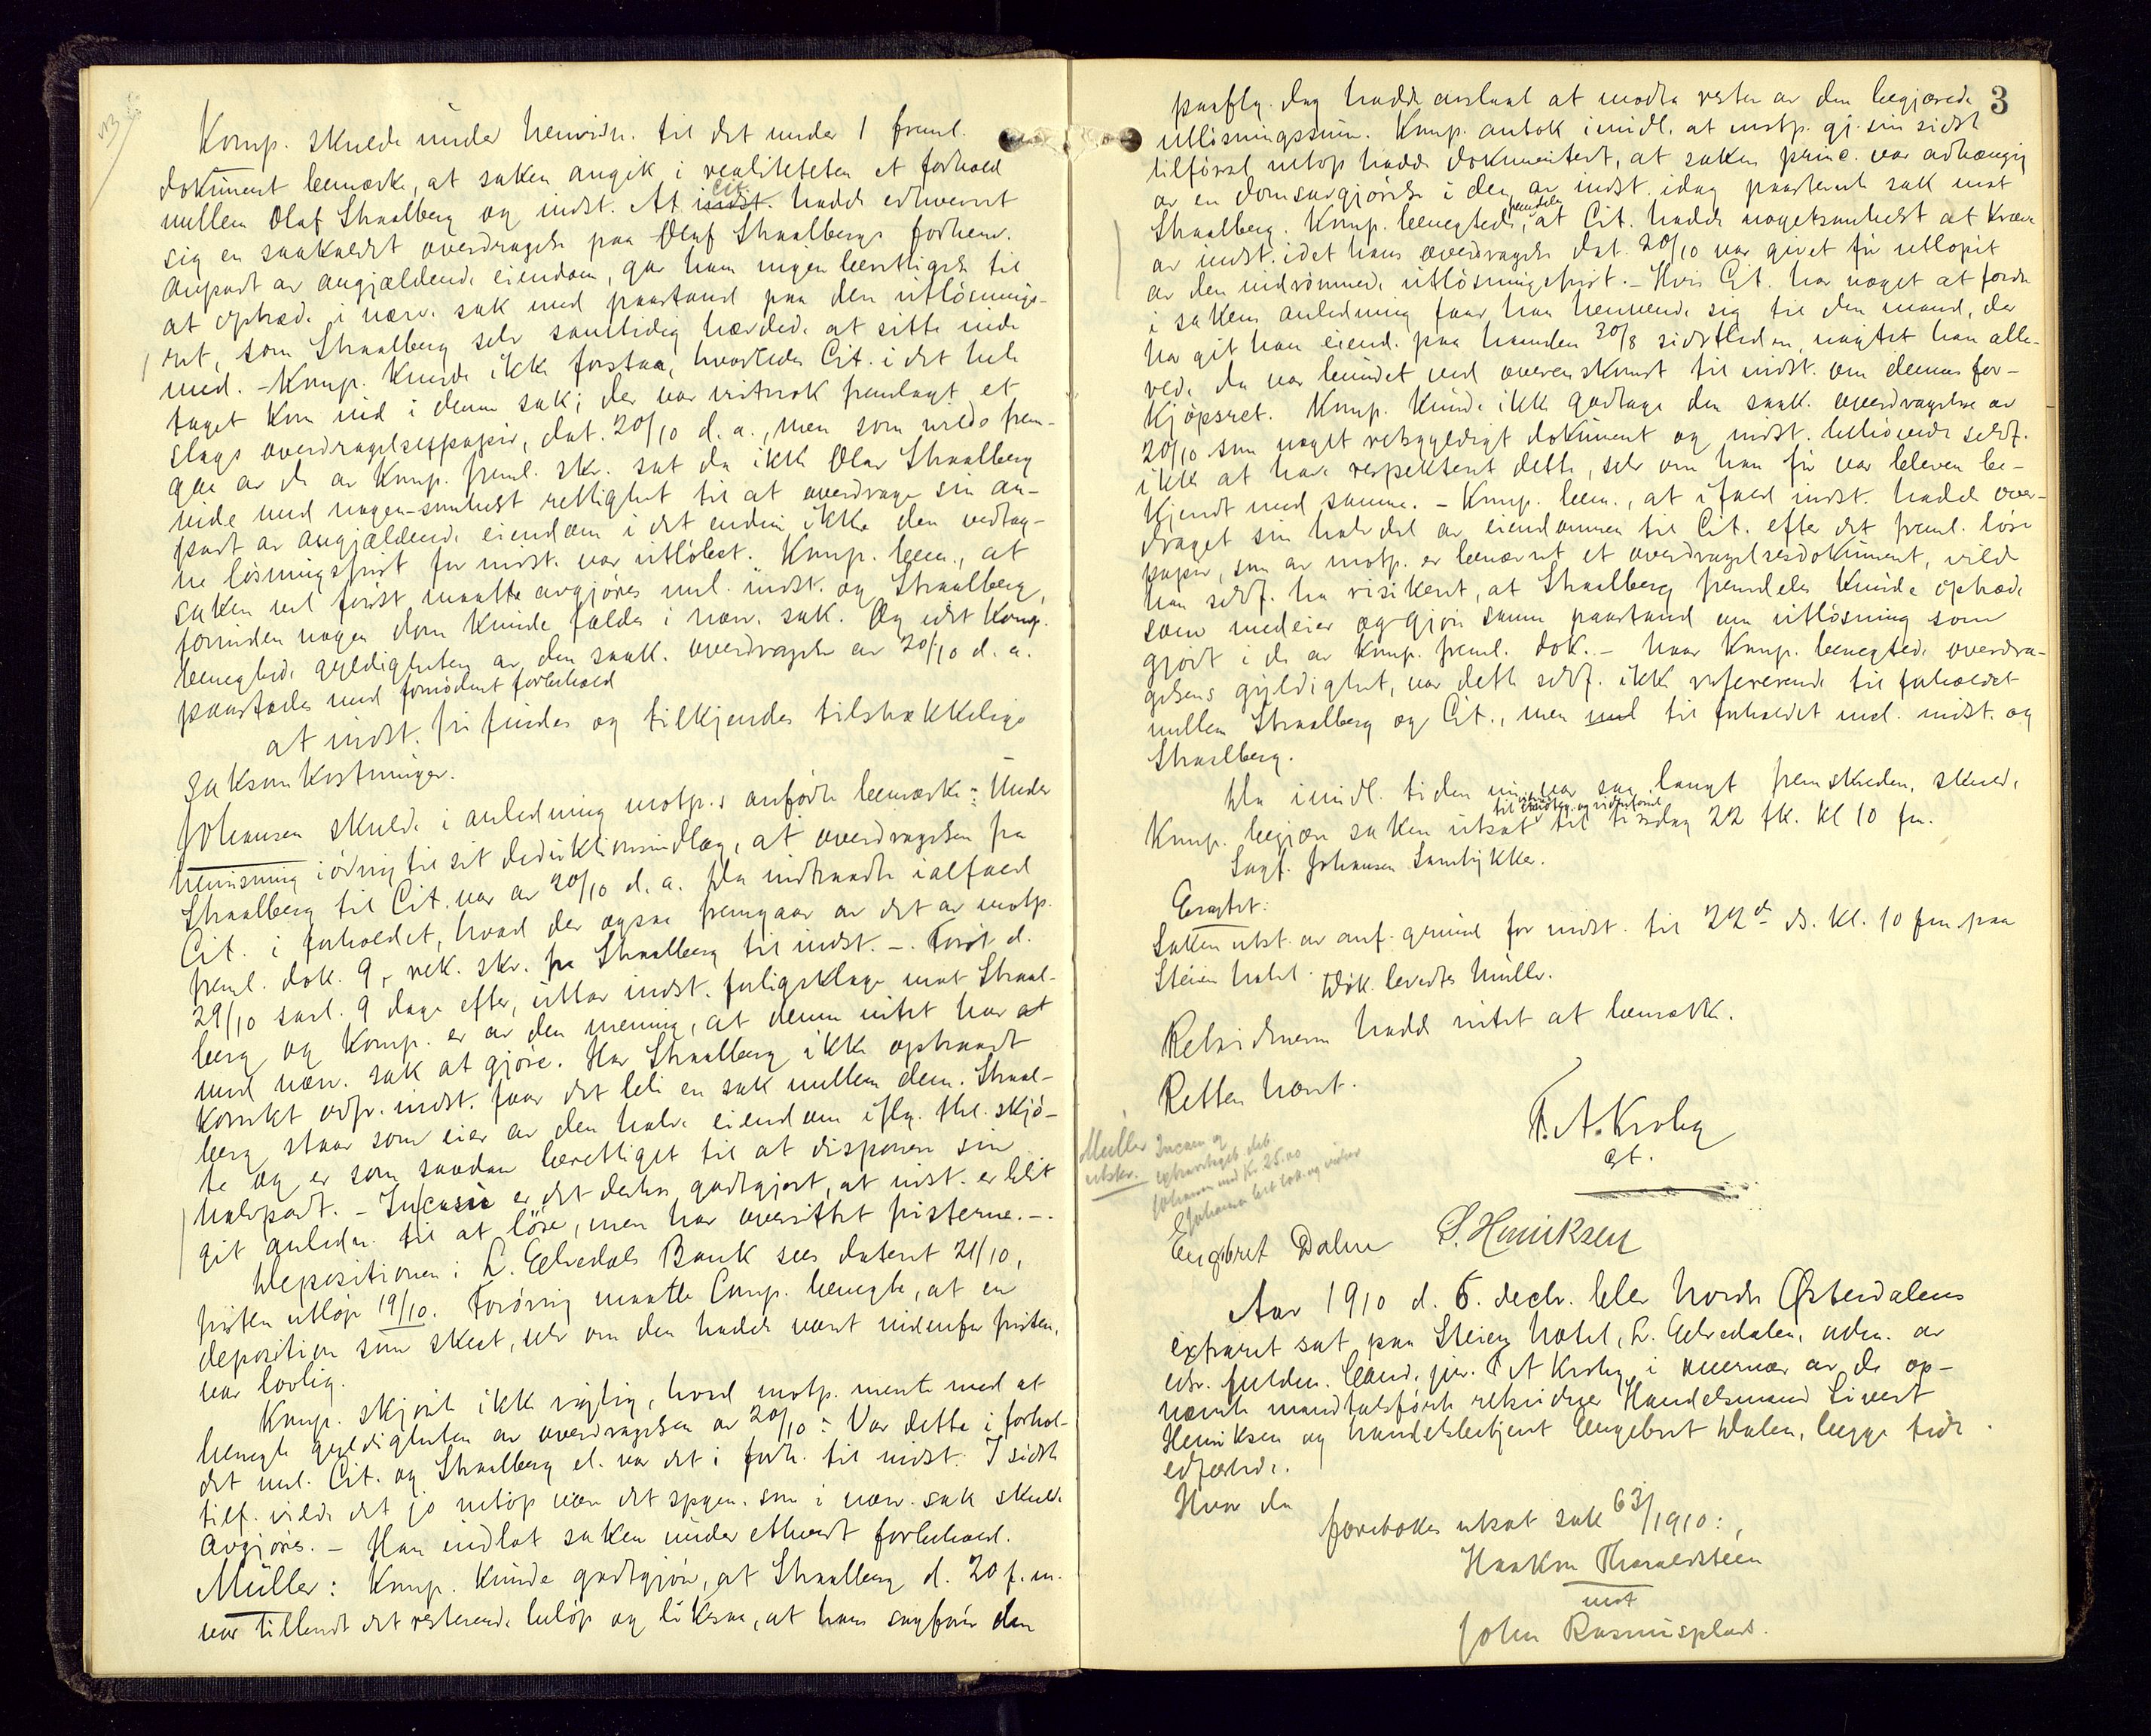 Komp. skulde under henvisn. til det under 1 freml.
dokument bemærke, at saken angik i realiteteten et forhold
mellem Olaf Straalberg og indst. At indst. Cit. hadde erhvervet
sig en saakaldt overdragelse paa Olaf Straalbergs forhenv.
anpart av angjældende eiendom, gav ham ingen berettigelse til
at optræde i nærv. sak med paastand paa den utlösnings-
ret, som Straalberg selv samtidig hævdede at sitte inde
med. - Komp. kunde ikke forstaa, hvorledes Cit. i det hele
taget kom ind i denne sak; der var vistnok fremlagt et
slags overdragelsespapir, dat. 20/10 d. a., men som vilde frem-
gaa av de av Komp. freml. skr. sat da ikke Olav Straalberg
inde med nogen-somhelst rettighet til at overdrage sin an-
part av angjældende eiendom i det endnu ikke den vedtag-
ne lösningsfrist for indst. var utlöbet. Komp. bem., at
saken vel först maatte avgjöres mel. indst. og Straalberg,
forinden nogen dom kunde fældes i nærv. sak. Og idet Komp.
benegtede gyldigheten av den saak. overdragelse av 20/10 d. a.
paastodes med fornödent forbehold
at indst. frifindes og tilkjendes tilstrækkelige
saksomkostninger.
Johansen skulde i anledning motp.s anförte bemærke: Under
henvisning iövrig til sit deduktionsindlæg, at overdragelsen fra
Straalberg til Cit. var av 20/10 d. a. Da indtraadte ialfald
Cit. i forholdet, hvad der ogsaa fremgaar av det av motp.
freml. dok. 9, rek. skr. fra Straalberg til indst. -. Först d.
29/10 saal. 9 dage efter, uttar indst. forligsklage mot Straal-
berg og Komp. er av den mening, at denne intet har at
med nærv. sak at gjöre. Har Straalberg ikke optraadt
korrekt ovfr. indst. faar det bli en sak mellem dem. Straal-
berg staar som eier av den halve eiendom iflg. thl. skjö-
te og er som saadan berettiget til at disponere sin
halvpart. - In casu er det derhos godtgjort, at inst. er blit
git anledn. til at löse, men har oversittet fristerne. -.
Depositionen i L. Elvedals Bank sees dateret 21/10,
fristen utlöp 19/10. Forövrig maatte Comp. benegte, at en
deposition som skeet, selv om den hadde været indenfor fristen,
var lovlig.
Komp. skjönte ikke rigtig, hvad motp. mente med at
benegte gyldigheten av overdragelsen av 20/10: Var dette i forhol-
det mel. Cit. og Straalberg el. var det i forh. til indst. I sidste
tilf. vilde det jo netop være det spgsm. som i nærv. sak skulde
avgjöres. - Han indlot saken under ethvert forbehold.
Müller: Komp. kunde godtgjöre, at Straalberg d. 20 f. m.
var tilsendt det resterende belöp og likesaa, at hans sagförer den
3
paaflg. dag hadde avslaat at motta resten av den begjærede
utlösningssum. Komp. antok imidl. at motp. gj. sin sidst
tilförsel netop hadde dokumentert, at saken princ. var avhængig
av en domsavgjörelse i den av indst. idag paastevnte sak mot
Straalberg. Komp. benegtede fremdeles, at Cit. hadde nogetsomhelst at kræve
av indst. idet hans overdragelse dat. 20/10 var givet för utlöpet
av den indrömmede utlösningsfrist. - Hvis Cit. har noget at fordre
i sakens anledning faar han henvende sig til den mand, der
har git ham eiend. paa haanden 30/8 sidstleden, uagtet han alle-
rede da var bundet ved overenskomst til indst. om dennes for-
kjöpsret. Komp. kunde ikke godtage den saak. overdragelse av
20/10 som noget retsgyldigt dokument og indst. behövede selvf.
ikke at have respekteret dette, selv om han för var bleven be-
kjendt med samme. - Komp. bem., at ifald indst. hadde over-
draget sin halvdel av eiendommen til Cit. efter det freml. löse
papir, som av motp. er benævnt et overdragelsesdokument, vilde
han selvf. ha risikeret, at Straalberg fremdeles kunde optræde
som medeier og gjöre samme paastand om utlösning som
gjort i de av Komp. freml. dok. - Naar Komp. benegtede overdra-
gelsens gyldighet, var dette selvf. ikke refererende til forholdet
mellem Straalberg og Cit., men vel til forholdet mel. indst. og
Straalberg.
Da imidl. tiden nu var saa langt fremskreden, skulde
Komp. begjære saken utsat til vidneforsel til tirsdag 22 fk. kl 10 fm.
Sagf. Johansen samtykker.
Eragtet:
Saken utst. av anf. grund for indst. til 22de ds. kl. 10 fm. paa
Steien hotel. Dok. levertes Müller.
Retsvidnerne hadde intet at bemærke.
Retten hævet.
F. A. Krohg
st.
Müller
utskr.
Johansen med Kr. 25.00
Engebret Dalen S. Henriksen
Aar 1910 d. 6. decbr. blev Nordre Østerdalens
extraret sat paa Steien hotel, L. Elvedalen, adm. av
edsv. fuldm. Cand. jur. F A Krohg, i overvær av de op-
nævnte mandtalsförte retsvidner Handelsmand Sivert
Henriksen og handelsbetjent Engebret Dalen, begge før
edfæstede.
Hvor da
forebokes utsat sak 63/1910:
Haakon Tharaldsteen
mot
John Rasmusplads.